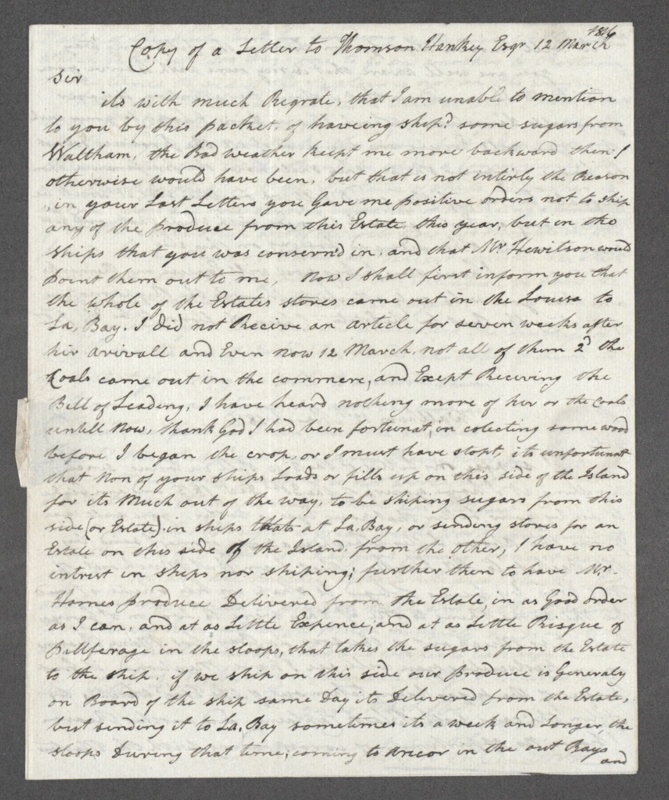 1816
Copy of a Letter to Thomson Hankey Esqr 12 March
Sir
its with much Regrate, that I am unable to mention
to you by this packet, of haveing ship.d some sugars from
Waltham, the Bad weather kept me more backward then I
otherwise would have been, but that is not interly the Reason
, in your Last Letters you Gave me positive orders not to ship
any of the produce from this Estate this year, but in the
Ships that you was conserned in, and that Mr Hewitson would
point them out to me, Now I shall first inform you that
the whole of the Estates stores came out in the Louisa to
La, Bay. I did not Recive an article for seven weeks after
hir arivall and Even now 12 March. not all of them 2d the
Coals came out in the commerce, and Exept Receving the
Bill of Leading, I have heard nothing more of hir or the Coals
untill Now, thank God I had been fortunat, in colecting some wood
before I began the crop, or I must have stopt, its unfortunat
that Non of your ships Loads or fills up on this side of the Island
for its Much out of the way, to be shiping sugars from this
side (or Estate) in ships thats at La, Bay, or sending stores for an
Estate on this side of the Island. from the other, I have no
intrist in ships nor shiping; further then to have Mr
Homes produce Delivered from the Estate, in as Good order
as I can. and at as Little Expence, and at as Little Risque of
Pillferage in the sloops, that takes the sugars from the Estate
to the ship. if we ship on this side our produce is Generaly
on Board of the ship same Day its Delivered from the Estate,
but sending it to La, Bay sometimes its a week and Longer, the
sloops During that time; coming to ancor in the out Bays
and